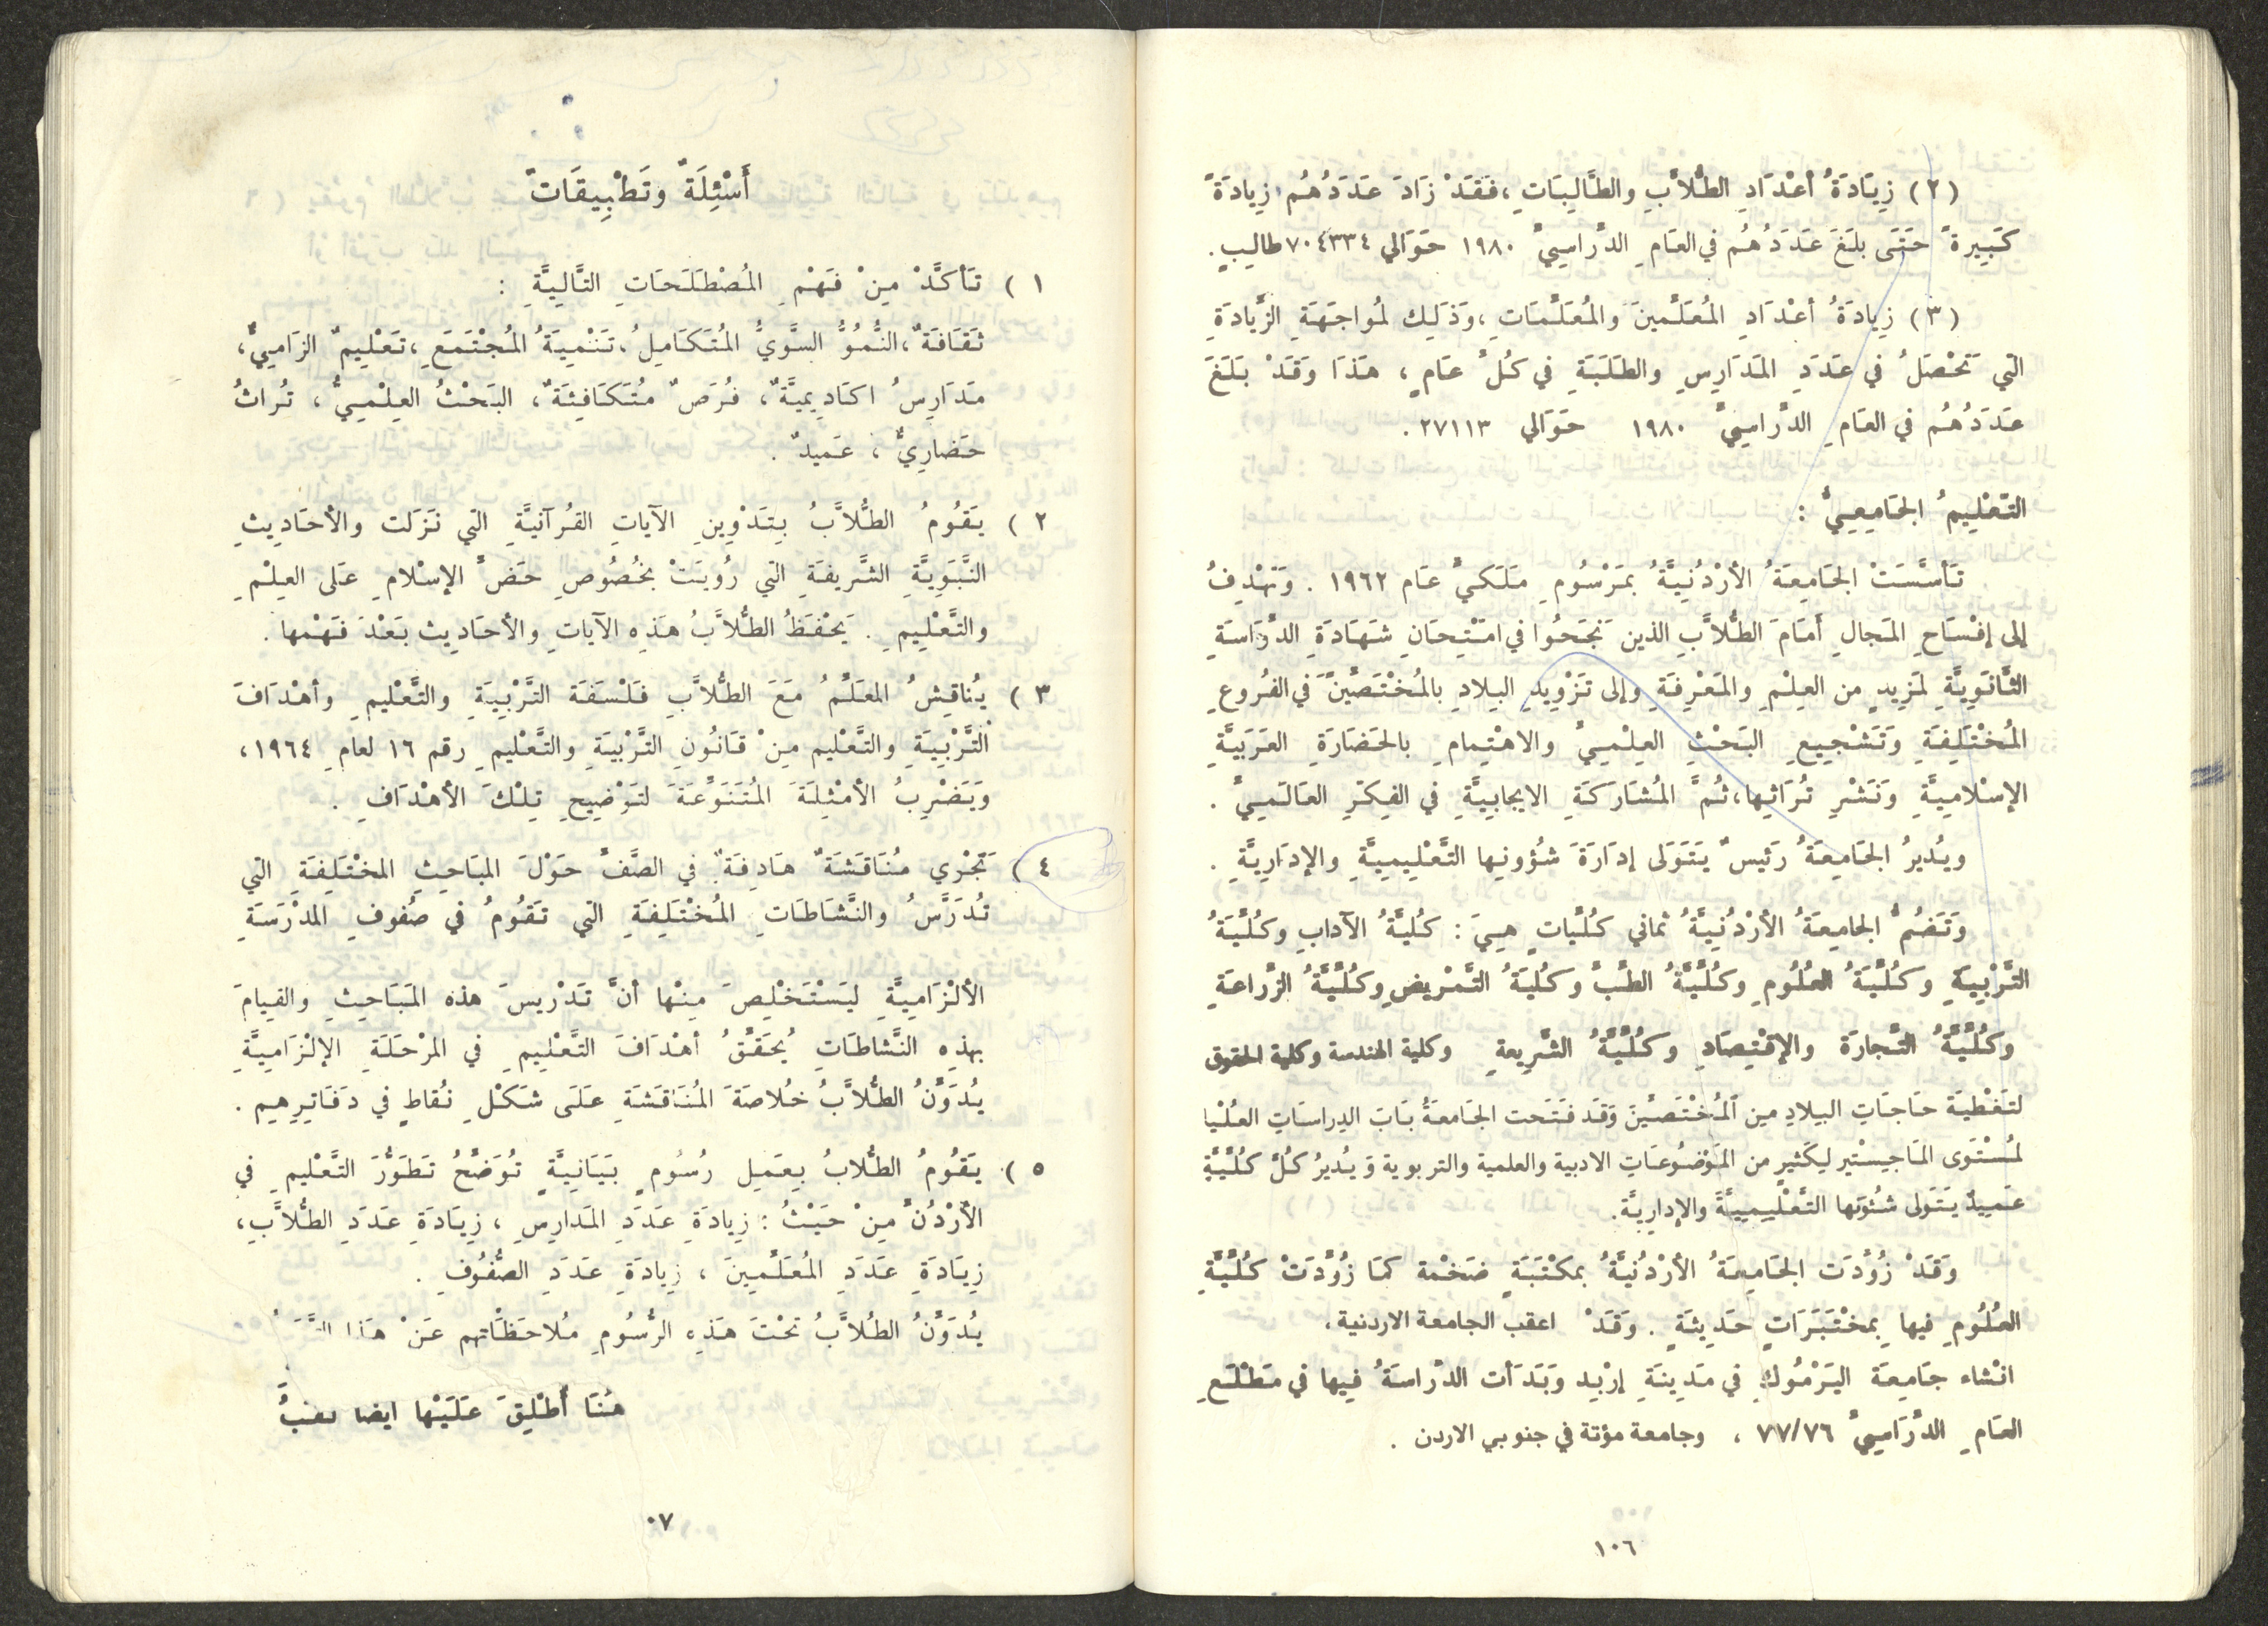 (٢) زِيَادَةُ أعْدَادِ الطُّلاَّبِ والطَّالِبَاتِ ،فَقَدْ زَادَ عَدَدُهُم زِيادَةً
كَبِيرةً حَتَى بلَغَ عَدَدُهُم في العَامِ الدِّراسِيِّ ١٩٨٠ حَوَالي ٧٠٤٣٣٤ طالِبٍ.
(٣) زِيادَةُ أعْدَادِ المُعَلِّمينَ وَالمُعَلِّمَاتِ ،وَذَلِك لمُواجَهَةِ الزِّيادَةِ
التي تَحْصَلُ في عَدَدِ المَدَارِسِ والطَلَبَةِ في كُلِّ عَامٍ ، هَذَا وَقَدْ بَلَغَ
عَدَدُهُم في العَامِ الدِّراسِيِّ ١٩٨٠ حَوَالي ٢٧١١٣ .
التَعْلِيمُ الجَامِعِيُّ :
تَأسَّسَتْ الجَامِعَةُ الأرْدُنِيَّةُ بمَرْسُومٍ مَلَكيٍّ عَام ١٩٦٢ . وَتَهْدِفُ
إلى إفْسَاحِ المَجالِ أمَامَ الطُلاَّبِ الذينَ نَجَحُوا في امْتِحَانِ شَهَادَةِ الدِّرَاسَةِ
الثَّانَوِيَّةِ لمَزِيدٍ من العِلْمِ والمَعْرِفَةِ وإلى تَزْوِيدِ البِلادِ بالمُخْتَصِّينَ في الفُرُوعِ
المُخْتَلِفَةِ وَتَشْجِيعِ البَحْثِ العِلْمِيِّ والاهْتِمامِ بالحَضَارَةِ العَرَبيَّةِ
الإسْلامِيَّةِ وَنَشْرِ تُرَاثِها،ثُمَّ المُشَارَكَةِ الايجابِيَّةِ في الفِكْرِ العَالَمِيِّ .
ويُدِيرُ الجَامِعَةُ رَئيسٌ يَتَوَلَى إدَارَةَ شؤُونِها التَّعْلِيمِيَّةِ والإدَارِيَّةِ .
وَتَضُمُّ الجَامِعَةُ الأرْدُنِيَّةُ ثماني كُلِّيَاتٍ هِيَ : كُليَّةُ الآدابِ وكُلِّيَةُ
التَّرْبِيَةِ وكُلِّيَةُ العُلُومِ وكُلِّيَّةُ الطِّبِّ وكُليَةُ التَّمْريضِ وكُلِّيَّةُ الزِّراعَةِ
وكُلِّيَّةُ التِّجارَة والإقْتِصَادِ وكُلِّيَّةُ الشَّرِيعةِ وكلية الهندسة وكلية الحقوق
لتَغْطيَة حَاجَاتِ البِلادِ مِن المُخْتَصِّينَ وَقَد فتَحَت الجَامعَةُ بَابَ الدِراسَاتِ العُلْيا
لمُسْتَوى المَاجيسْتير ليكَثيرٍ من المَوْضُوعَاتِ الادبية والعلمية والتربوية وَيُديرُ كُلَّ كُلِّيَّةٍ
عَميدٌ يَتَولى شئُونَها التَّعْلِيمِيَّةَ والإدارِيَّة.
وَقَدْ زُوِّدَت الجَامِعَةُ الأرْدُنيَّةُ بمَكتَبَةٍ ضَخْمة كمَا زُوِّدَتْ كُلِّيَّةِ
العُلُومِ فيها بِمخْتَبَرَاتٍ حَدِيثَةٍ . وَقَدْ اعقب الجامعة الاردنية،
انْشاء جَامِعَة اليَرْمُوكِ في مَدِينَةِ إرْبِد وَبَدَأت الدِّراسَةُ فيِها في مَطْلَعِ
العَامِ الدِّرَاسِيِّ ٧٧/٧٦ ، وجامعة مؤتة في جنوبي الاردن .
١٠٦
أسْئِلَةٌ وتَطْبِيقَاتٌ
١ ) تَأكَّدْ مِنْ فَهْمِ المُصْطَلَحَاتِ التَّالِيَّةِ :
ثَقَافَةٌ ،النُّمُوُّ السَّوِيُّ المُتَكَامِلُ ،تَنْميَةُ المُجْتَمَعِ ،تَعْلِيمٌ الزَامِيٌّ،
مَدَارِسُ اكَادِيمِيَّةٌ ، فُرَصٌ مُتَكَافِئَةٌ ، البَحْثُ العِلْمِيُّ ، تُراثُ
حَضارِيٌّ ، عَمِيدٌ .
٢ ) يَقُومُ الطُّلاَّبُ بِتَدْوِينِ الآيَاتِ القُرآنيَّةِ التي نَزَلَت والأحَادِيثِ
النَّبَوِيَّةِ الشَّريفَةِ التي رُوِيَتْ بخُصُوصِ حَضِّ الإسْلامِ عَلى العِلْمِ
والتَّعْلِيمِ . يَحْفَظُ الطُّلاَّبُ هَذِه الآيَاتِ والأحَاديث بَعْدَ فَهْمها .
٣ ) يُناقِشُ المعَلِّمُ مَعَ الطُّلاَّبِ فَلْسَفَة التَّرْبِيَةِ والتَّعْليمِ وأهْدَافَ
التَّرْبِيَةِ والتَّعْليم مِنْ قَانُونِ التَّرْبيَةِ والتَّعْليمِ رقم ١٦ لعامِ ١٩٦٤،
وَيَضْرِبُ الأمْثِلَةَ المُتَنَوِّعَةَ لتَوْضِيحِ تِلْكَ الأهْدَافِ .
٤ ) تَجْرِي مُنَاقَشَةٌ هَادِفَةٌ في الصَّفِّ حَوْلَ المبَاحِثِ المخْتَلِفَةِ التي
تُدَرَّسُ والنَّشَاطَاتِ المُخْتَلِفَةِ التي تَقُومُ في صُفوفِ المدْرَسَةِ
الألْزَامِيَّةِ ليَسْتَخْلِصَ مِنْها أنَّ تَدْريسَ هذه المَبَاحِثِ والقيامَ
بِهذِه النَّشاطَاتِ يُحَقِّقُ أهْدَافَ التَّعْلِيمِ في المرْحَلَةِ الإلْزَامِيَّةِ
يُدَوِّنُ الطُّلاَّبُ خُلاصَةَ المُنَاقَشَةِ عَلَى شَكْلِ نُقاطٍ في دَفَاتِرِهِم .
٥ ) يَقُومُ الطُّلابُ بِعَمِل رُسُومٍ بَيَانِيَّةٍ تُوَضِّحُ تَطَوُّرَ التَّعْلِيمِ في
الأرْدُنِّ مِنْ حَيْثُ : زِيادَةِ عَدَدِ المَدارِسِ ، زِيَادَةِ عَدَدِ الطُلاَّبِ،
زِيَادَةِ عَدَدِ المُعَلِّمِينَ ، زِيادَةِ عَدَدِ الصُّفُوفِ .
يُدَوِّنُ الطُلاَّبُ تحْتَ هَذِه الرُّسُومِ مُلاحَظَاتهم عَنْ هَذا
هُنَا أُطْلِقَ عَلَيْها ايضا
٠٧